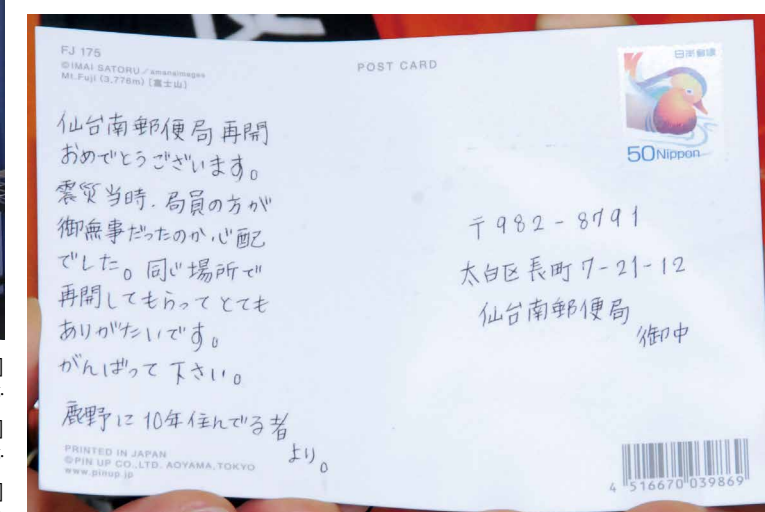 FJ 175
©IMAI SATORU/amanaimages
Mt.Fuji (3,776m) [富士山]
POST CARD
日本郵便
50Nippon
仙台南郵便局再開
おめでとうございます。
震災当時、局員の方が
御無事だったのか心配
でした。同じ場所で
再開してもらってとても
ありがたいです。
がんばって下さい。
鹿野に10年住んでる者
より。
〒982-8791
太白区長町7-21-12
仙台南郵便局
御中
PRINTED IN JAPAN
©PIN UP CO.,LTD. AOYAMA,TOKYO
www.pinup.jp
4 516670 039869